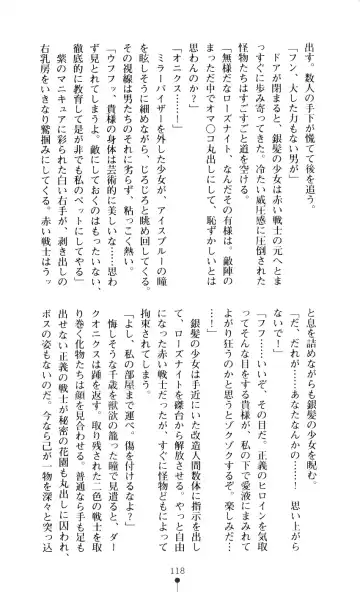 出す。数人の手下が慌てて後を追う。
「フン、大した力もない男が」
ドアが閉まると、銀髪の少女は赤い戦士の元へとま
っすぐに歩み寄ってきた。冷たい威圧感に圧倒された
怪物たちはすごすごと道を空ける。
「無様だなローズナイト、なんだその有様は。敵陣の
まっただ中でオマ〇コ丸出しにして、恥ずかしいとは
思わんのか？」
「オニクス……！」
ミラーバイザーを外した少女が、アイスブルーの瞳
を眩しそうに細めながら、じろじろと眺め回してくる。
その視線は男たちのそれに劣らず、粘っこく熱い。
「ウフフッ、貴様の身体は芸術的に美しいな……思わ
ず見とれてしまうよ。敵にしておくのはもったいない、
徹底的に教育して是が非でも私のペットにしてやる」
紫のマニキュアに彩られた白い右手が、剥き出しの
右乳房をいきなり鷲掴みにしてくる。赤い戦士はウッ
と息を詰めながらも銀髪の少女を睨む。
「だ、だれが……あなたなんかの……！　思い上がら
ないで！」
「フフ……いいぞ、その目だ。正義のヒロインを気取
ってそんな目をする貴様が、私の下で愛液にまみれて
よがり狂うのかと思うとゾクゾクするぞ。楽しみだ…
…！」
銀髪の少女は手近にいた改造人間数体に指示を出し
て、ローズナイトを磔台から解放させる。やっと自由
になった赤い戦士だったが、すぐに怪物どもによって
拘束されてしまう。
「よし、私の部屋まで運べ。傷を付けるなよ？」
悔しそうな千歳を獣欲の籠った瞳で見遣ると、ダー
クオニクスは踵を返す。取り残された二色の戦士を取
り巻く化物たちは顔を見合わせる。普通なら手も足も
出せない正義の戦士が秘密の花園も丸出しに囚われ、
ボスの姿もないのだ。今なら己が一物を深々と突っ込
118